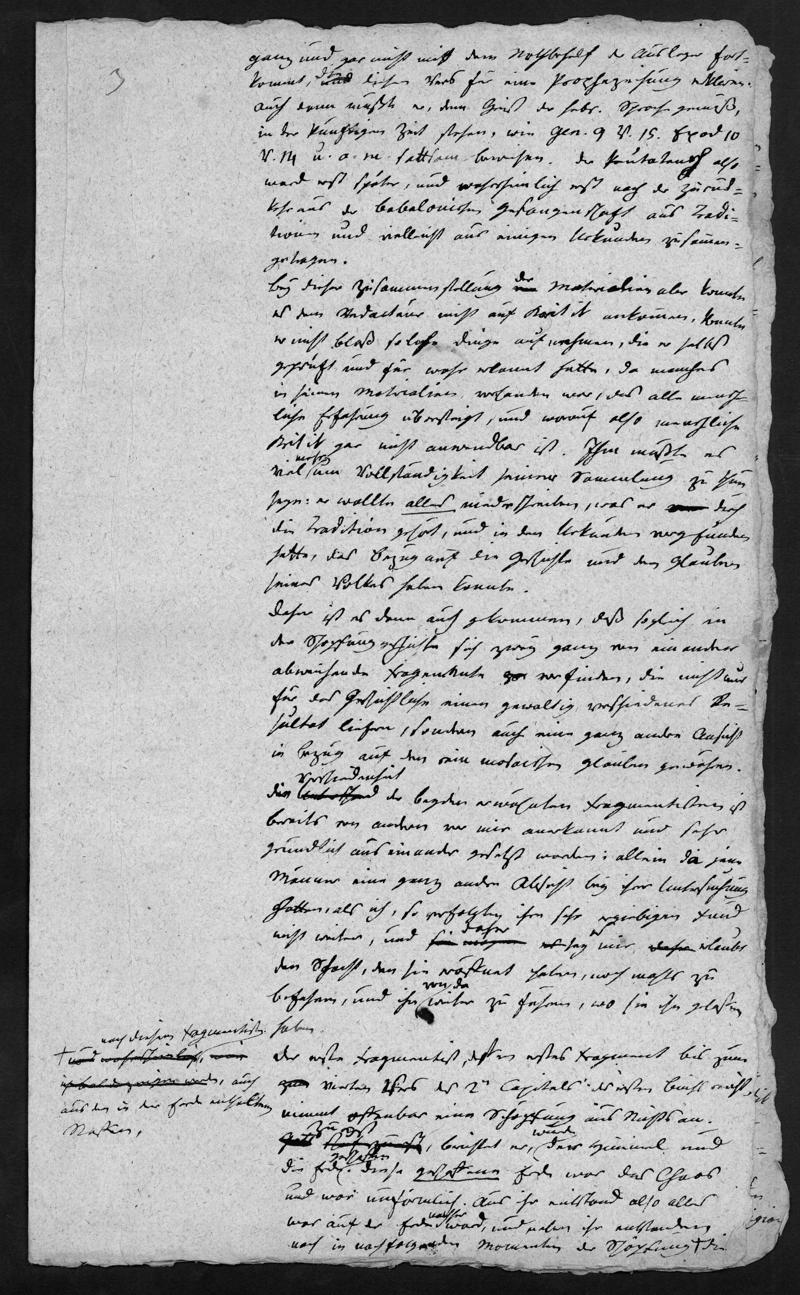 3
ganz und gar nicht mit dem Nothbehelf der Ausleger fort-
kommt, daß dieser Vers für eine Prophezeihung erklären.
Auch dann müßte er, dem Geist der hebr. Sprache gemäß,
in der künftigen Zeit stehen, wie Gen. 9 V. 15. Exod 10
V. 14 u. a. m. sattsam beweisen. Der Pentateuch also
ward erst später, und wahrscheinlich erst nach der Zurück-
kehr aus der babylonischen Gefangenschaft aus Tradi-
tionen und vielleicht aus einigen Urkunden zusammen-
getragen.
Bey dieser Zusammenstellung der Materialien aber konnte
es dem Redacteur nicht auf Kritik ankommen, konnte
er nicht bloß solche Dinge aufnehmen, die er selbst
geprüft und für wahr erkannt hatte, da manches
in seinen Materialien vorhanden war, das alle mensch-
liche Erfahrung übersteigt, und worauf also menschliche
Kritik gar nicht anwendbar ist. Ihm mußte es
vielmehr um Vollständigkeit seiner Sammlung zu thun
seyn: er wollte alles niederschreiben, was er durch
die Tradition gehört, und in den Urkunden vorgefunden
hatte, das Bezug auf die Geschichte und den Glauben
seines Volkes haben konnte.
Daher ist es denn auch gekommen, daß sogleich in
der Schöpfungsgeschichte sich zwey ganz von einander
abweichende Fragmente vorfinden, die nicht nur
für das Geschichtliche einen gewaltig verschiedenes Re-
sultat liefern, sondern auch eine ganz andere Ansicht
in Bezug auf den rein mosaischen Glauben gewähren.
Die Verschiedenheit der beyden erwähnten Fragmentisten ist
bereits von andern vor mir anerkannt und sehr
gründlich auseinander gesetzt worden; allein da jene
Männer eine ganz andere Absicht bey ihrer Untersuchung
hatten, als ich, so verfolgten ihren sehr ergiebigen Fund
nicht weiter, und daher sey es mir erlaubt
den Schacht, den sie eröffnet haben, noch mals zu
befahren, und ihn von da weiter zu führen, wo sie ihn gelassen
haben.
Der erste Fragmentist, dessen erstes Fragment bis zum
vierten Vers des 2n Capitels des ersten Buchs reicht
nimmt offenbar eine Schöpfung aus Nichts an.
Zuerst, berichtet er, wurde der Himmel und
die Erde geschaffen. Diese geschaffene Erde war das Chaos
und war unförmlich. Aus ihr entstand also alles
was auf der Erde nachher ward, und neben ihr entstanden
nach in nachfolgenden Momenten der Schöpfung † die
nach diesem Fragmentisten
† und wahrscheinlich, wie
auch
aus den in der Erde enthaltenen
Stoffen,